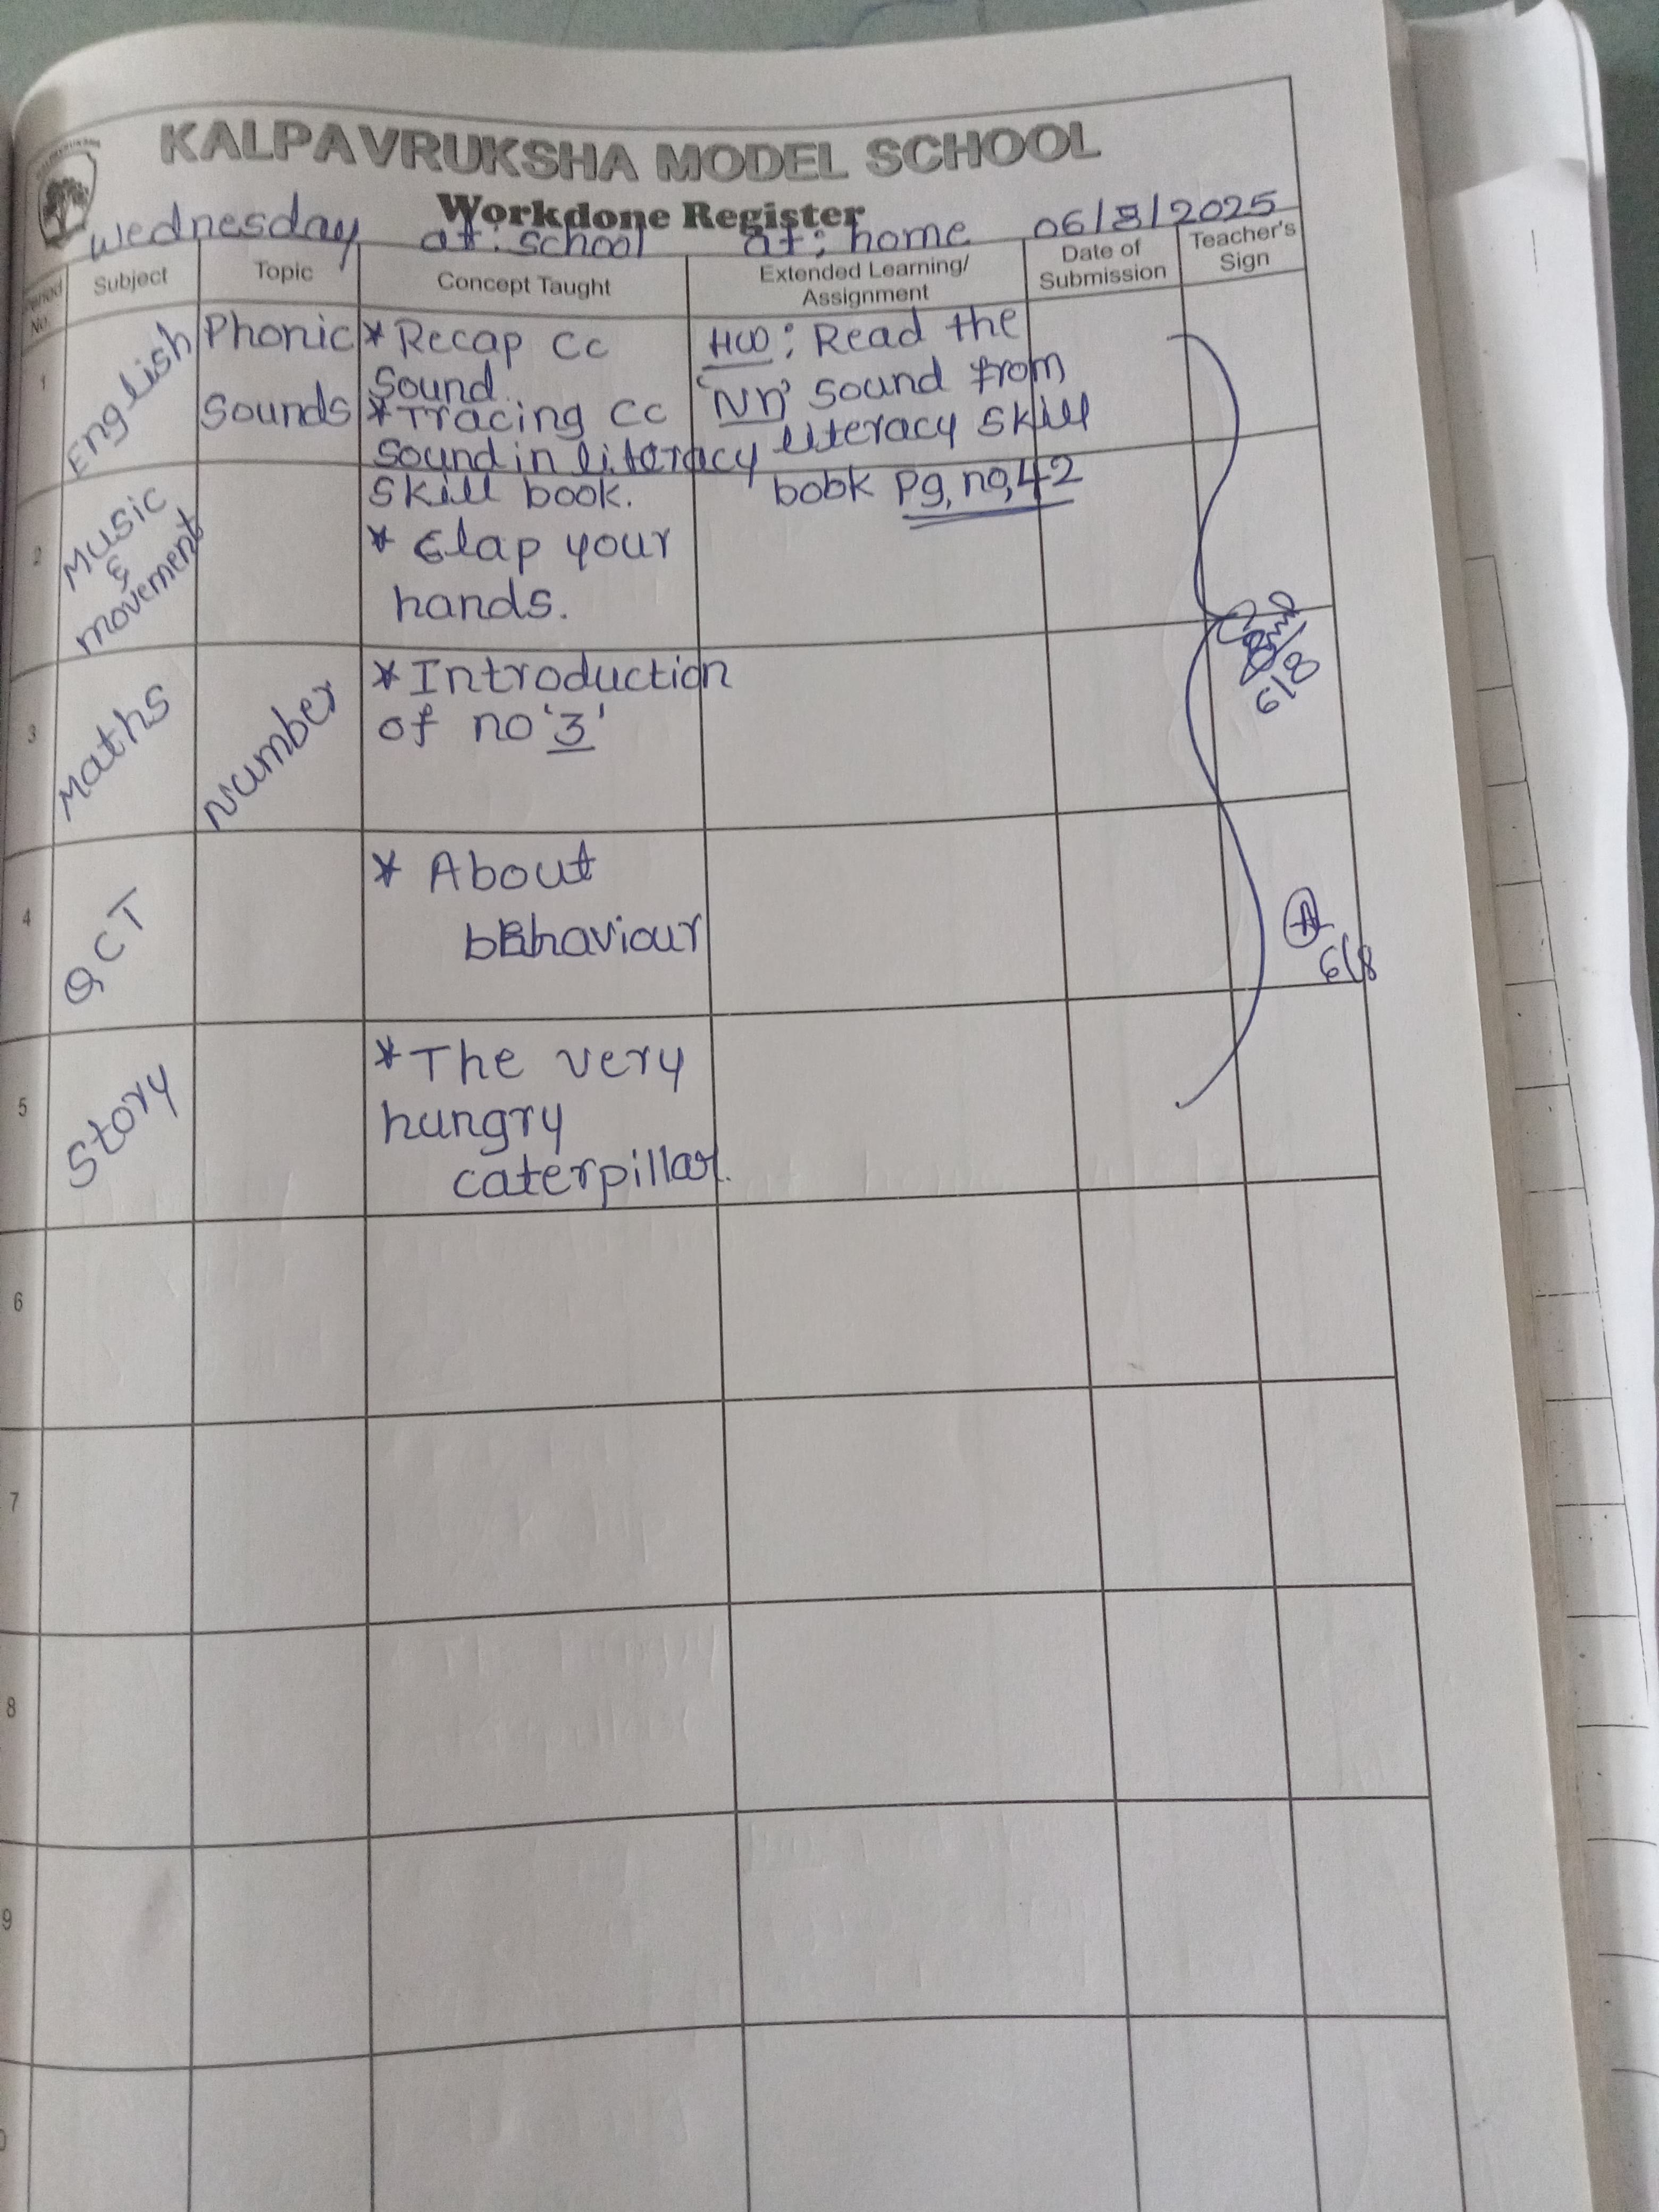 KALPAVRUKSHA MODEL SCHOOL
Workdone Register
Wednesday at: school at: home 06/8/2025
Period No. Subject Topic Concept Taught Extended Learning/ Assignment Date of Submission Teacher's Sign
1 English Phonic Sounds
* Recap Cc
Sound.
* Tracing Cc
Sound in literacy
skill book.
HW: Read the
'Nn' sound from
literacy skill
book pg, no, 42
2 Music & movement
* Clap your
hands.
3 Maths Number
* Introduction
of no '3'
6/8
4 QCT
* About
behaviour
6/8
5 Story
* The very
hungry
caterpillar.
6
7
8
9